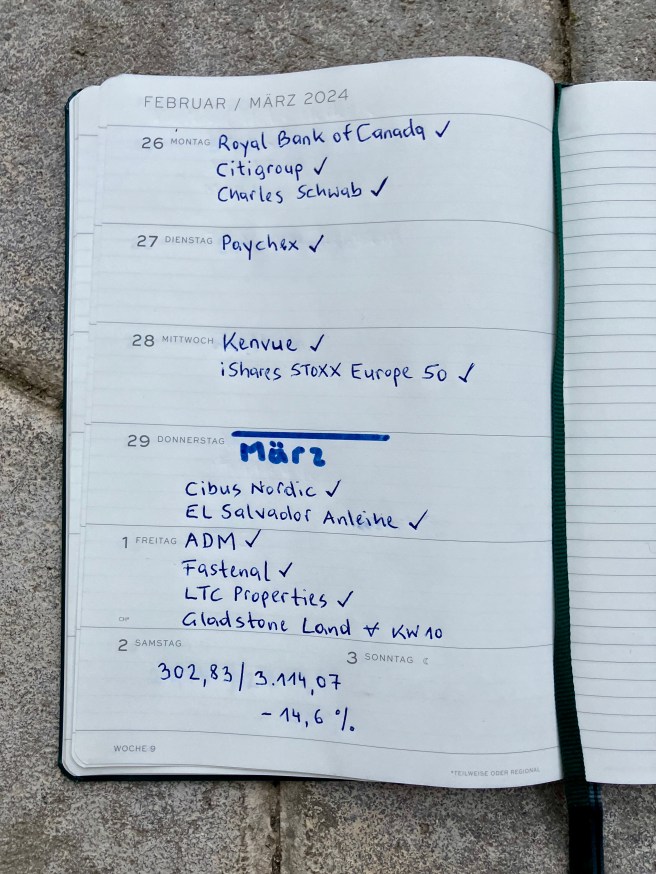 FEBRUAR / MÄRZ 2024
26 MONTAG Royal Bank of Canada ✓
Citigroup ✓
Charles Schwab ✓
27 DIENSTAG Paychex ✓
28 MITTWOCH Kenvue ✓
iShares STOXX Europe 50 ✓
29 DONNERSTAG
März
Cibus Nordic ✓
EL Salvador Anleihe ✓
1 FREITAG ADM ✓
Fastenal ✓
LTC Properties ✓
CH*
Gladstone Land KW 10
2 SAMSTAG
3 SONNTAG ☾
302,83 / 3.114,07
- 14,6 %
WOCHE 9
*TEILWEISE ODER REGIONAL